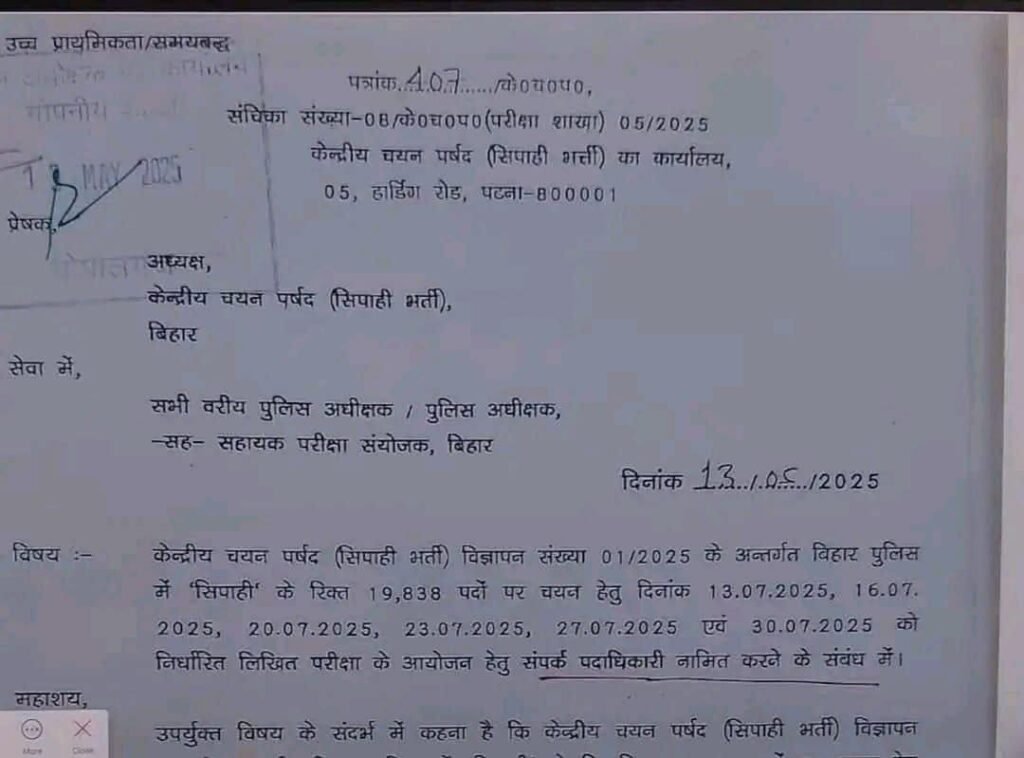 उच्च प्राथमिकता/समयबद्ध
गोपनीय
पत्रांक..407....../के०च०प०,
संचिका संख्या-08/के०च०प०(परीक्षा शाखा) 05/2025
केन्द्रीय चयन पर्षद (सिपाही भर्त्ती) का कार्यालय,
13 MAY 2025
05, हार्डिंग रोड, पटना-800001
प्रेषक,
अध्यक्ष,
केन्द्रीय चयन पर्षद (सिपाही भर्ती),
बिहार
सेवा में,
सभी वरीय पुलिस अधीक्षक / पुलिस अधीक्षक,
-सह- सहायक परीक्षा संयोजक, बिहार
दिनांक 13../.05../2025
विषय :- केन्द्रीय चयन पर्षद (सिपाही भर्ती) विज्ञापन संख्या 01/2025 के अन्तर्गत बिहार पुलिस
में 'सिपाही' के रिक्त 19,838 पदों पर चयन हेतु दिनांक 13.07.2025, 16.07.
2025, 20.07.2025, 23.07.2025, 27.07.2025 एवं 30.07.2025 को
निर्धारित लिखित परीक्षा के आयोजन हेतु संपर्क पदाधिकारी नामित करने के संबंध में।
महाशय,
उपर्युक्त विषय के संदर्भ में कहना है कि केन्द्रीय चयन पर्षद (सिपाही भर्ती) विज्ञापन
More Close